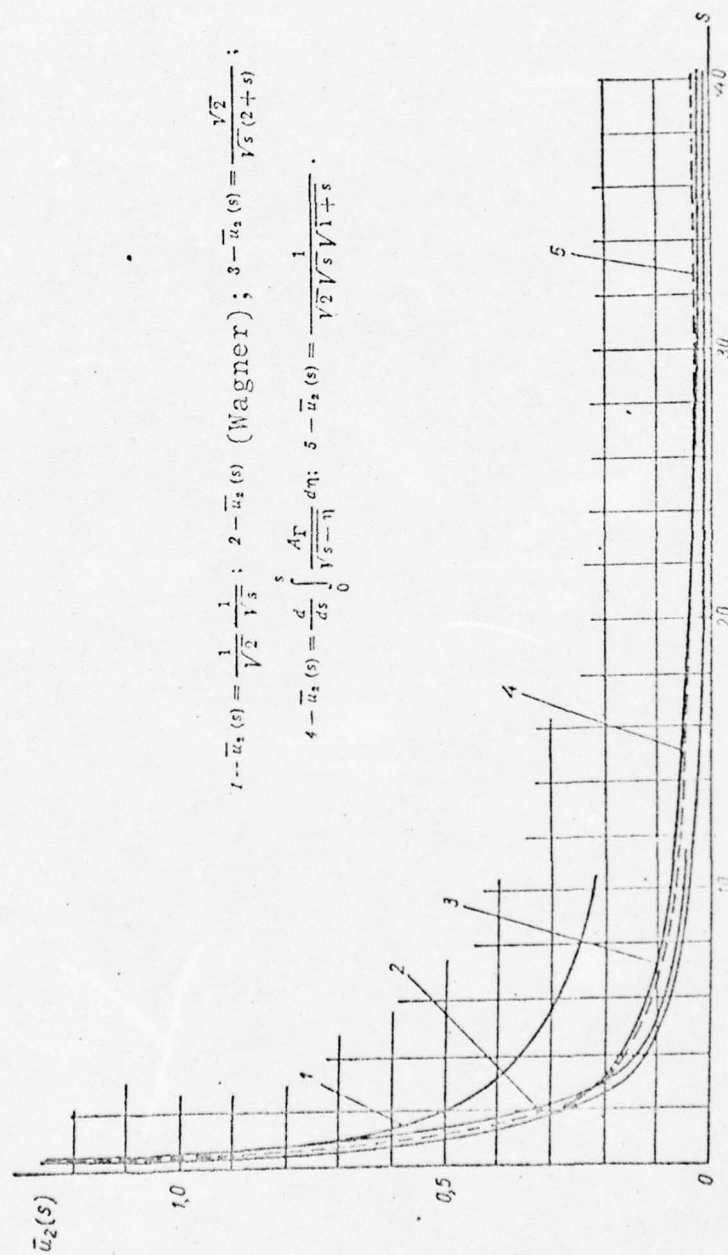 ū₂(s)
1,0
0,5
0
10
20
30
40
s
1
2
3
4
5
1 -- ū₂(s) = 1/√2 1/√s ; 2 – ū₂(s) (Wagner) ; 3 – ū₂(s) = √2/(√s (2+s)) ;
4 – ū₂(s) = d/ds ∫₀ˢ A_Γ/√(s–η) dη; 5 – ū₂(s) = 1/(√2 √s √(1+s)) .